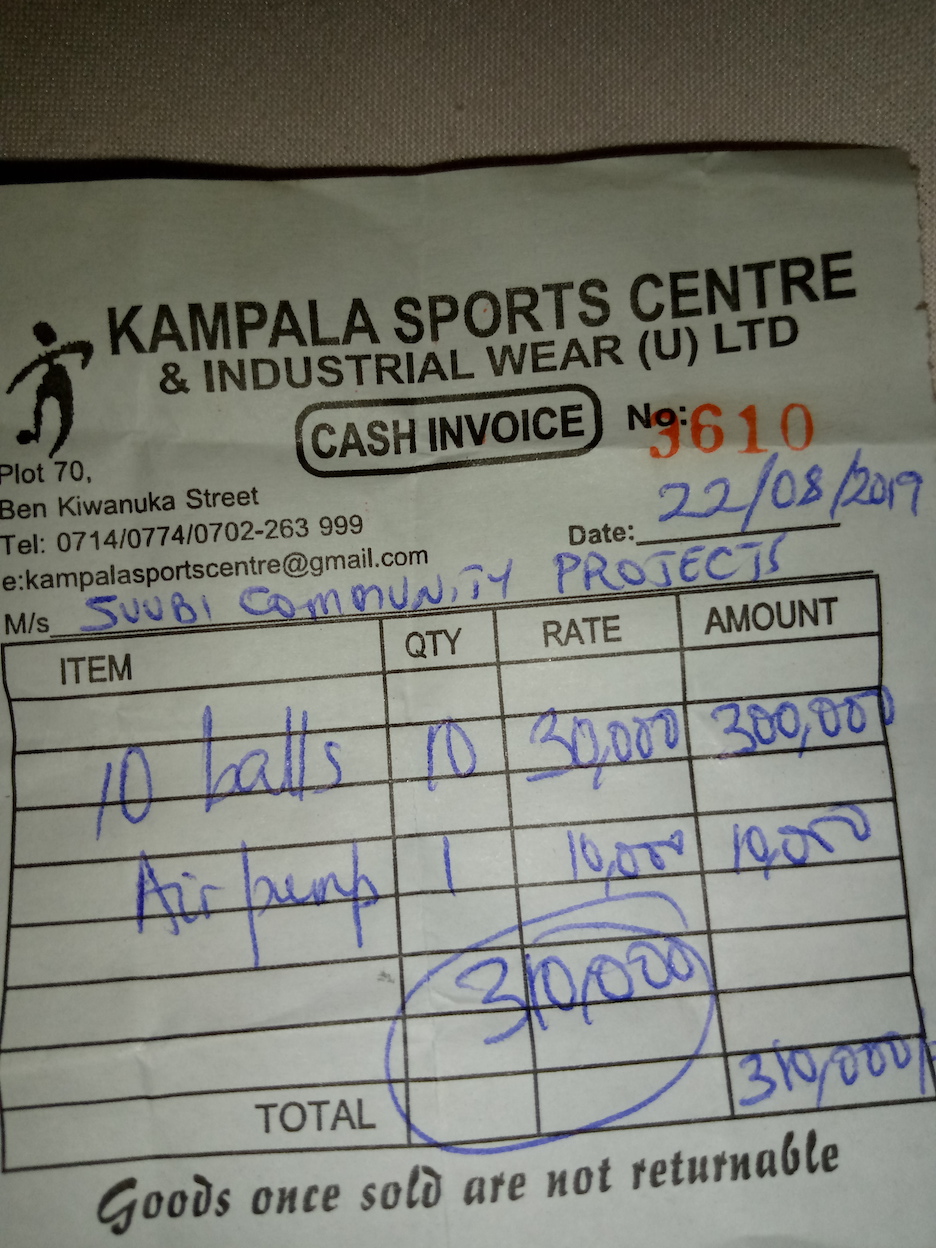 KAMPALA SPORTS CENTRE
& INDUSTRIAL WEAR (U) LTD
CASH INVOICE No: 3610
Plot 70,
Ben Kiwanuka Street
Tel: 0714/0774/0702-263 999
e:kampalasportscentre@gmail.com
Date: 22/08/2019
M/s SUUBI COMMUNITY PROJECTS
ITEM QTY RATE AMOUNT
10 balls 10 30,000 300,000
Air pump 1 10,000 10,000
310,000
TOTAL 310,000/
Goods once sold are not returnable